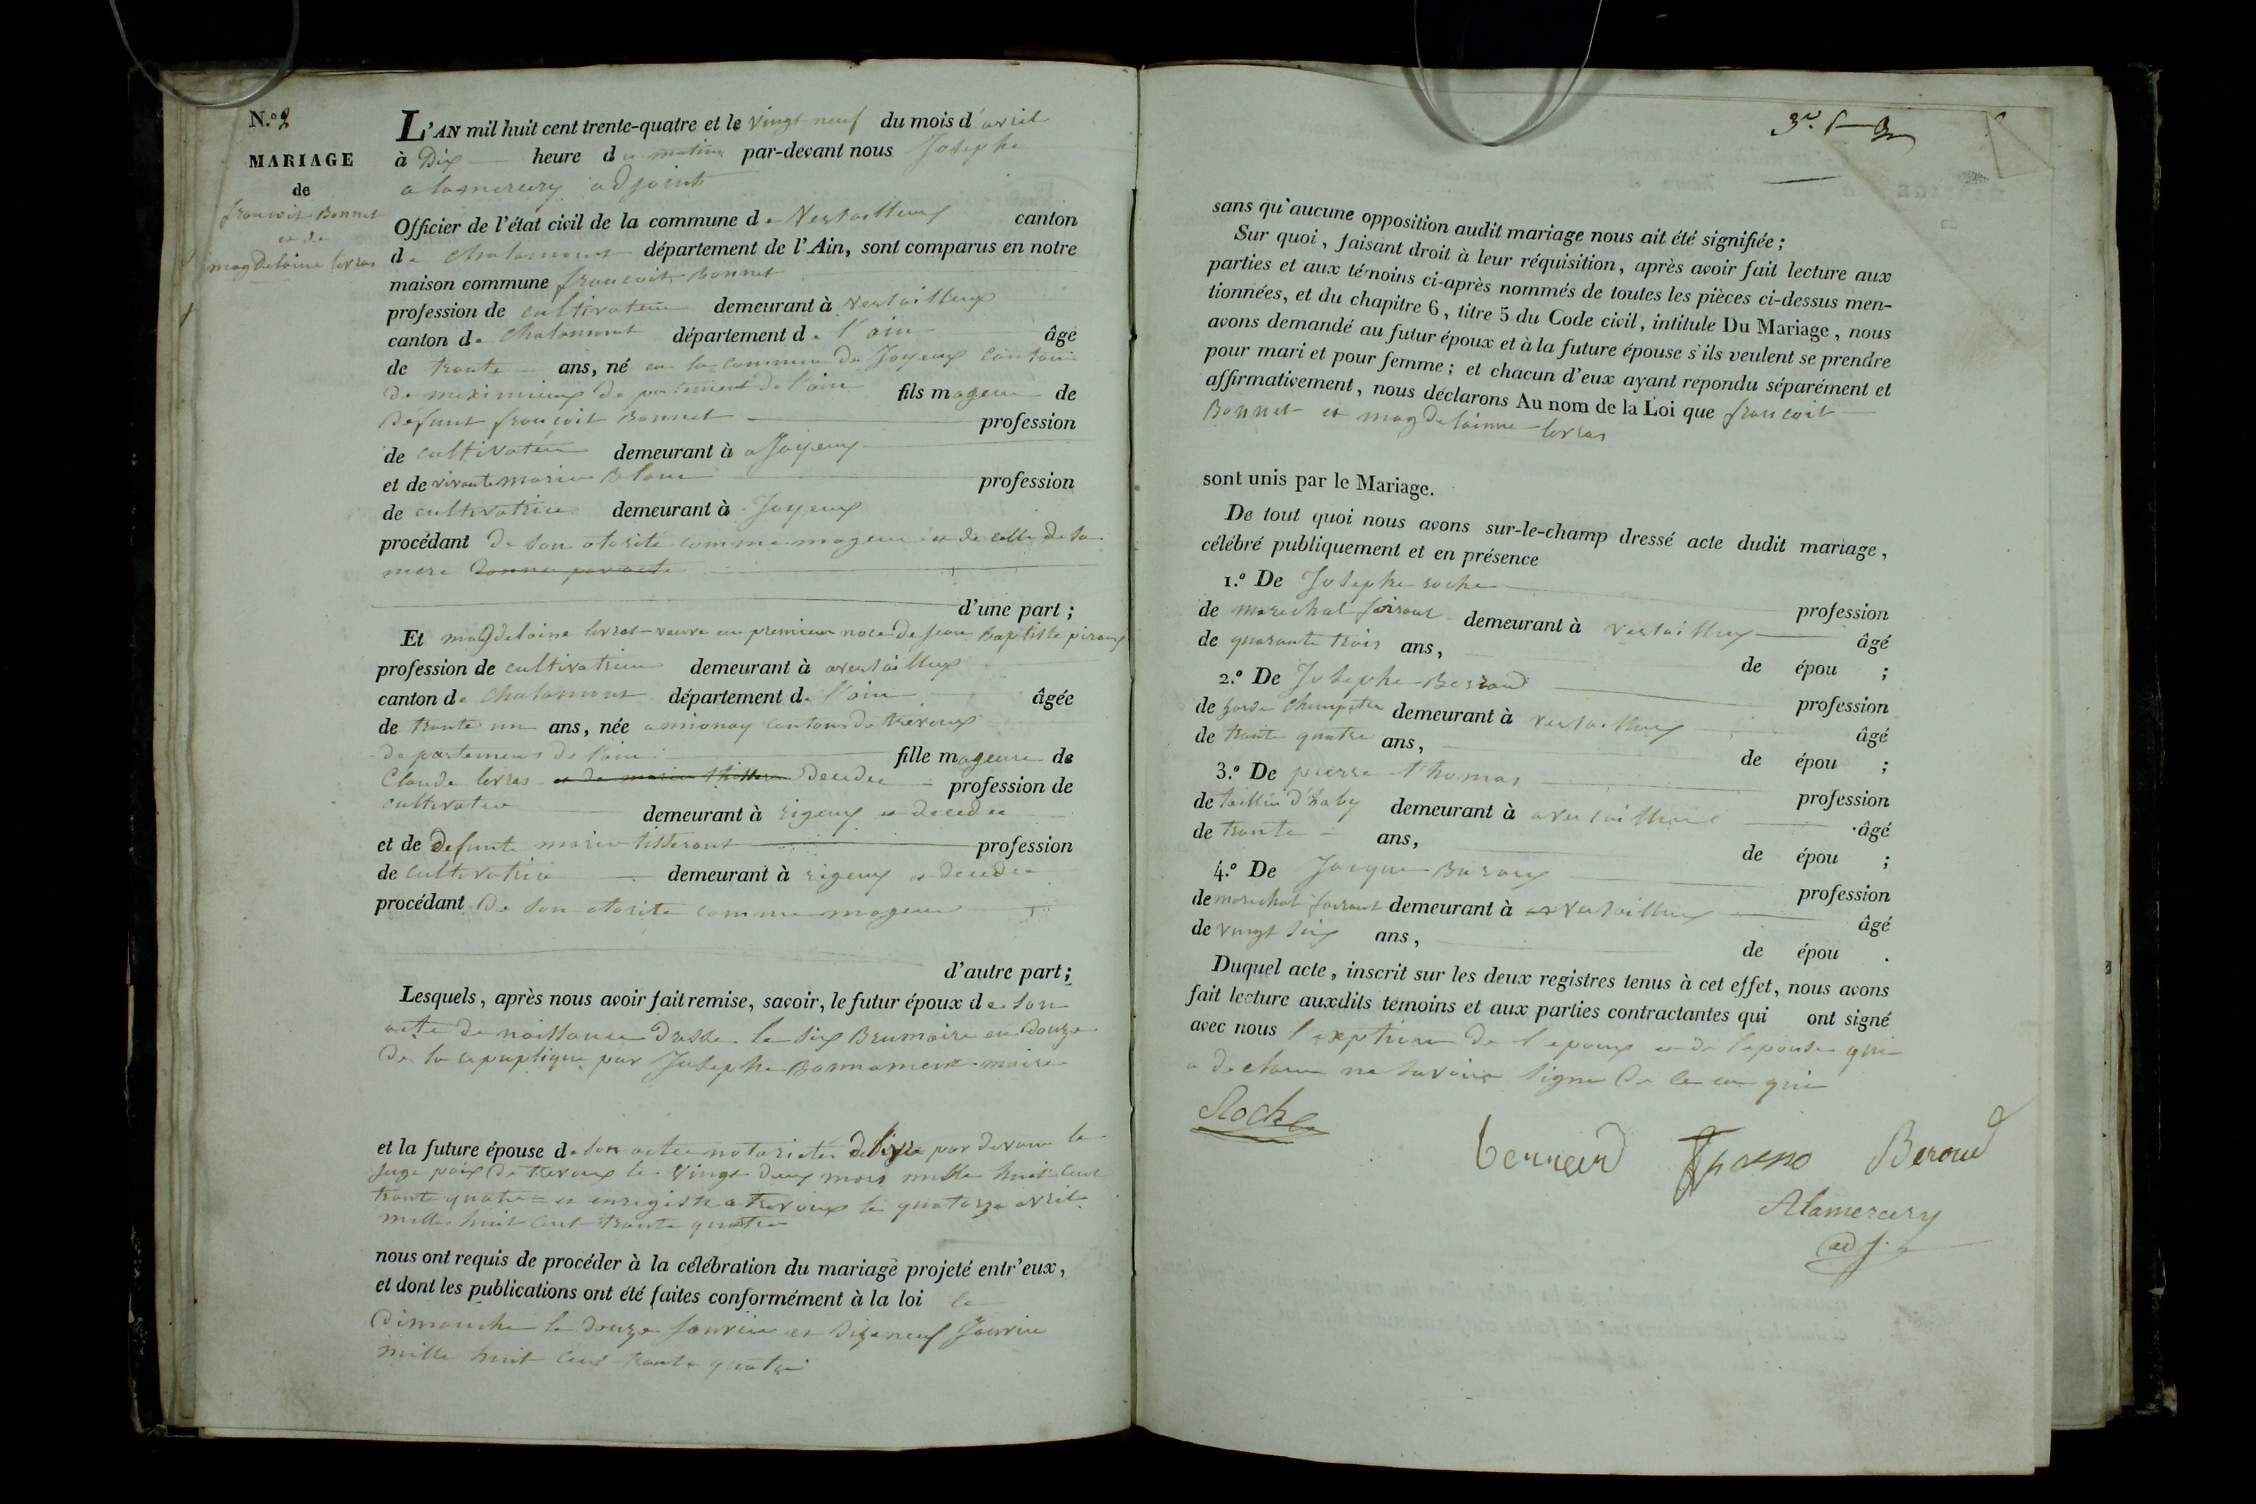 N.o 2
MARIAGE
de
francoit Bonnet
et de
magdelaine lorras
L'AN mil huit cent trente-quatre et le vingt neuf du mois d'avril
à Dix heure du matin par-devant nous Josephe
alamercery adjoint
Officier de l'état civil de la commune de Versailleux canton
de chalamont département de l'Ain, sont comparus en notre
maison commune francoit Bonnet
profession de cultivateur demeurant à versailleux
canton de chalamont département de l'ain âgé
de trante ans, né en la commune de Joyeux canton
de meximieux departement de l'ain fils mageur de
defunt françoit Bonnet profession
de cultivateur demeurant à a Joyeux
et de vivante marie Blanc profession
de cultivatrice demeurant à Joyeux
procédant de son otorité comme mageur et de celle de sa
mere donner par acte
d'une part ;
Et magdelaine lorras veuve en premier noce de jean Baptiste
profession de cultivatrice demeurant à aversailleux
canton de chalamont département de l'ain âgée
de trante un ans, née a mionay cantons de trevoux
departement de l'ain fille mageure de
Claude lorras et de marie decedee profession de
cultivateur demeurant à rigeux et decedee
et de defunte marie tisserant profession
de cultivatrice demeurant à rigeux et decedee
procédant de son otorite comme mageure
d'autre part ;
Lesquels, après nous avoir fait remise, savoir, le futur époux de son
acte de naissance dresse le six Brumaire an douze
de la repuplique par Josephe Bonnament maire
et la future épouse de son acte notorieté delivre par devant le
juge paix de trevoux le vingt deux mars mille huit cent
trante quatre et enregistre a trevoux le quatorze avril
mille huit cent trante quatre
nous ont requis de procéder à la célébration du mariage projeté entr'eux,
et dont les publications ont été faites conformément à la loi le
Dimanche le douze Janvier et dix neuf Janvier
mille huit cent trante quatre
sans qu'aucune opposition audit mariage nous ait été signifiée ;
Sur quoi, faisant droit à leur réquisition, après avoir fait lecture aux
parties et aux témoins ci-après nommés de toutes les pièces ci-dessus men-
tionnées, et du chapitre 6, titre 5 du Code civil, intitule Du Mariage, nous
avons demandé au futur époux et à la future épouse s'ils veulent se prendre
pour mari et pour femme ; et chacun d'eux ayant repondu séparément et
affirmativement, nous déclarons Au nom de la Loi que francoit
Bonnet et magdelainne lorras
sont unis par le Mariage.
De tout quoi nous avons sur-le-champ dressé acte dudit mariage,
célébré publiquement et en présence
1.o De Josephe roche profession
de marechal fairant demeurant à versailleux âgé
de quarante trois ans, de épou ;
2.o De Josephe Berraud profession
de garde Champetre demeurant à versailleux âgé
de trante quatre ans, de épou ;
3.o De pierre thomas profession
de demeurant à aversailleux âgé
de trante ans, de épou ;
4.o De Jacque profession
de marechal fairant demeurant à versailleux âgé
de vingt six ans, de épou .
Duquel acte, inscrit sur les deux registres tenus à cet effet, nous avons
fait lecture auxdits témoins et aux parties contractantes qui ont signé
avec nous l'exption de l'epoux et de l'epouse qui
a declarer ne savoir signe de ce en qui
Roche
Beroud
Alamercery
adj.